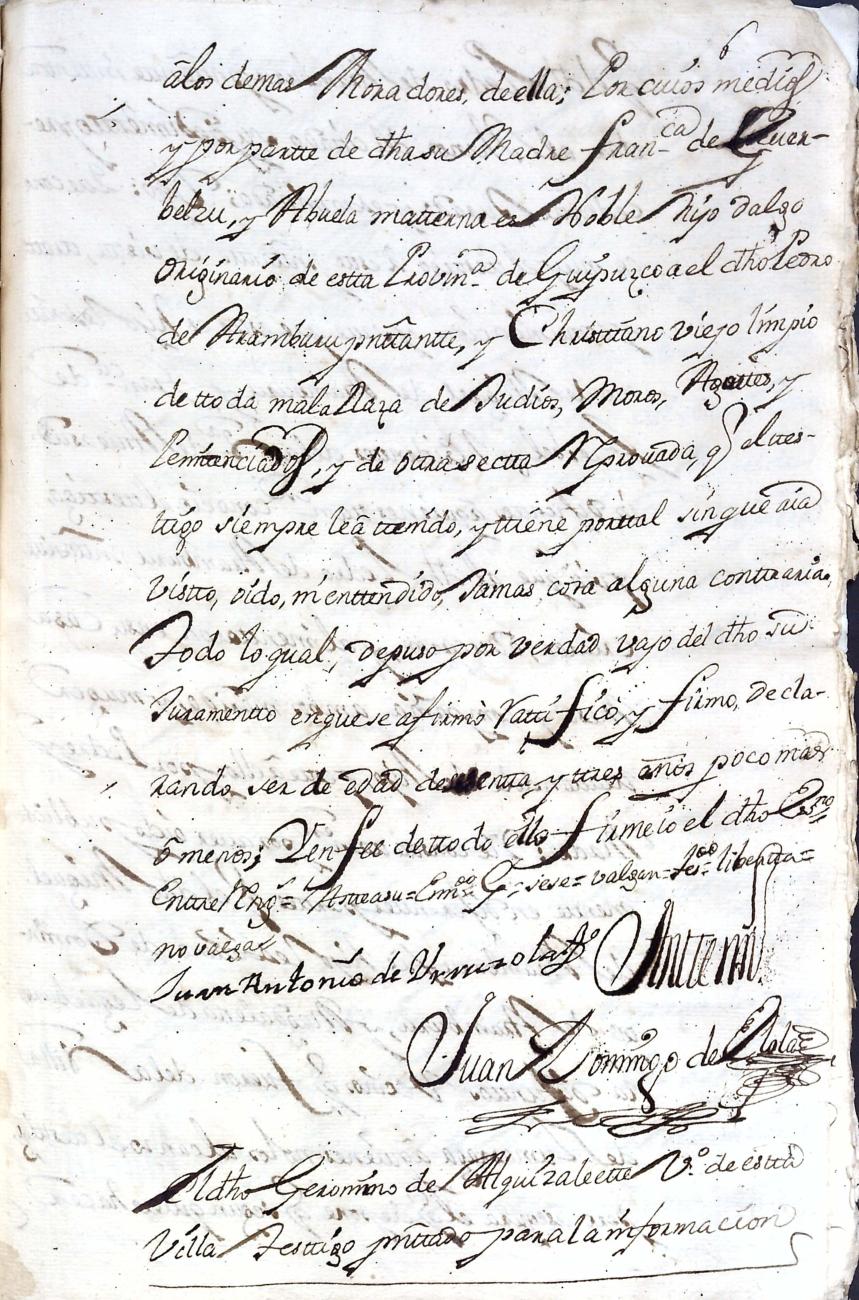 6
âlos demas Moradores, de ella; Por cuios medios
y por partte de dha su Madre fran.ca de
beltzu, y Abuela matterna es Noble hijo dalgo
originario de estta Provin.a de Guypuzcoa el dho Pedro
de Aramburu pnttantte, y Christtiano viejo límpio
de ttoda mala Raza de Judíos, Moros, Agottes, y
Penittenciados, y de otra sectta Reprouada, q el ttes-
ttigo siempre le â ttenido, y ttiene porttal sin que aia
vistto, oido, ni enttendido, Jamas cosa alguna conttraria,
Todo lo qual, depuso por verdad vajo del dho su
Juramentto en que se afirmò Rattificò, y firmo, decla-
rando ser de edad de sesentta y ttres años poco mas
ô menos; Y en fee de ttodo ello firme io el dho Ess.no
Enttre Reng.s= Astteasu= Enm.do = sese= valgan= tes.do libertta=
no valga
Juan Antonío de Urruzola
Antte mi
Juan Domingo de
El dho Geronimo de Alquizaleette V.o de estta
Villa Testtigo pnttado para la informacion